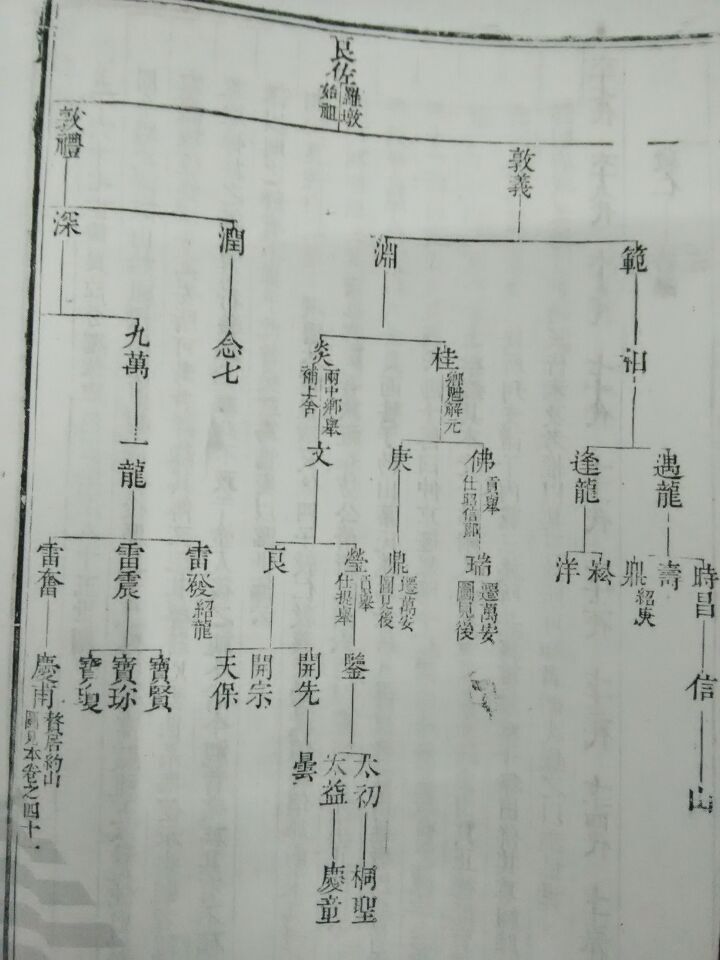 良佐
羅墩
始祖
敦義
敦禮
範
淵
潤
深
祖
桂
鄉貢解元
炎
兩中鄉舉
補上舍
念七
九萬
遇龍
逢龍
佛
貢舉
庚
文
一龍
時昌
壽
鼎
紹庚
崧
洋
瑞
遷萬安
圖見後
鼎
遷萬安
圖見後
瑩
貢舉
仕提舉
良
雷發
紹龍
雷震
雷奮
信
鑒
開先
開宗
天保
寶賢
寶珍
慶甫
贅居約山
圖見本卷之四十一
山
太初
太益
曇
桐聖
慶童